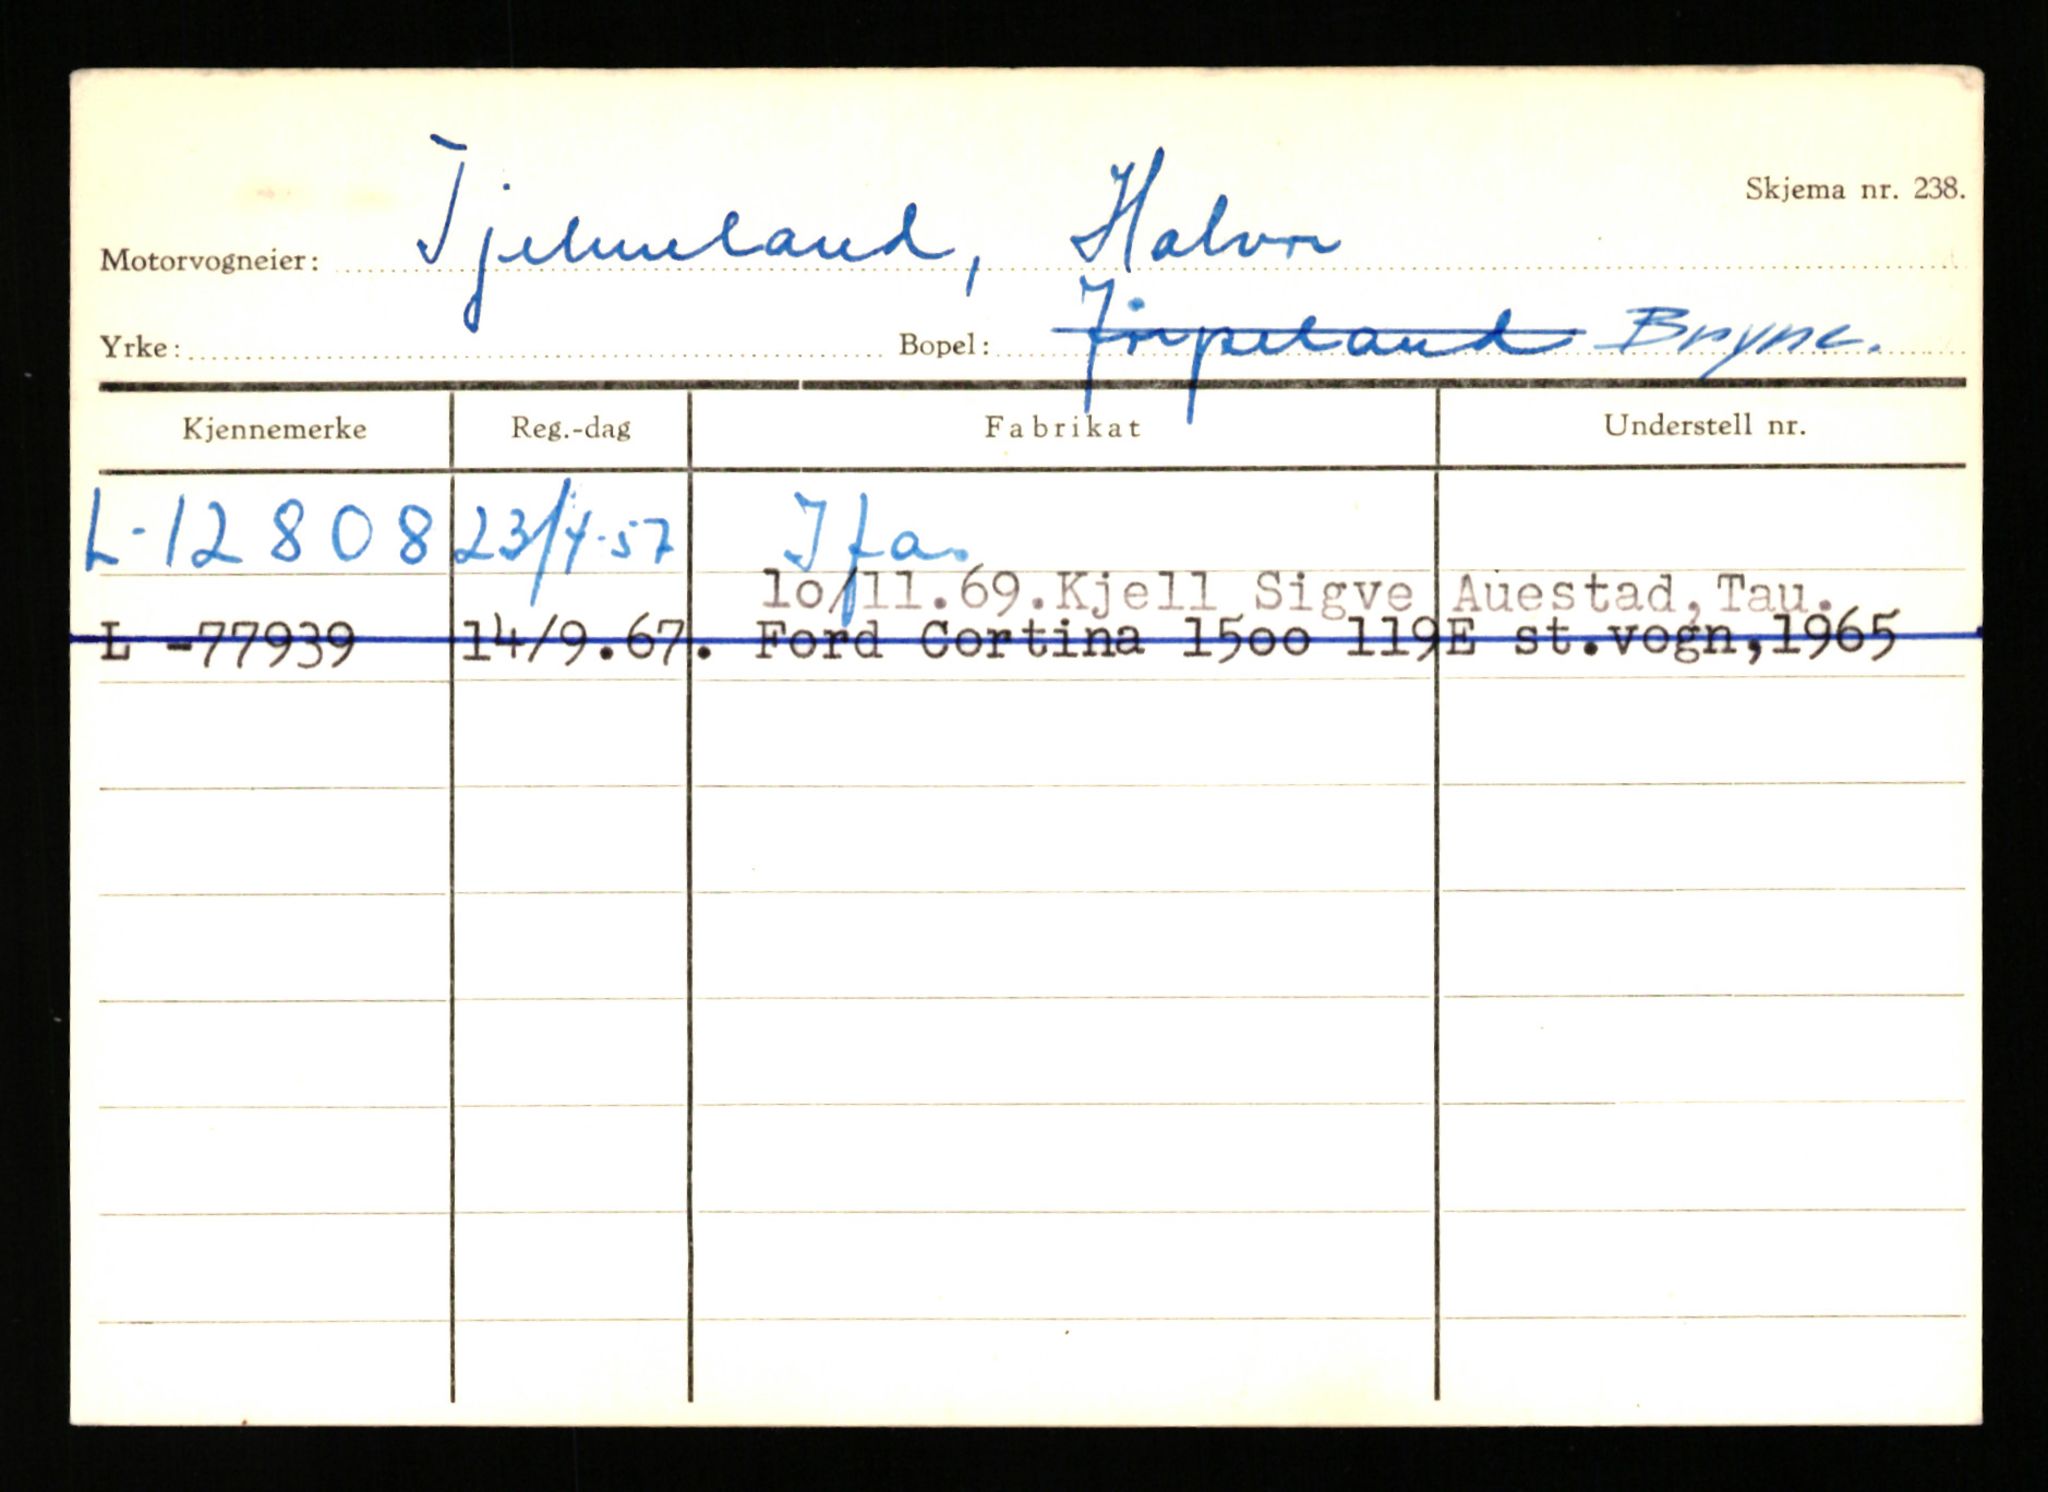 Skjema nr. 238.
Motorvogneier: Tjelmeland, Halvor
Yrke: Bopel: Jörpeland Bryne.
Kjennemerke Reg.-dag Fabrikat Understell nr.
L-12808 23/4-57 Ifa.
lo/11.69.Kjell Sigve Auestad,Tau.
L -77939 14/9.67. Ford Cortina 15oo 119E st.vogn,1965